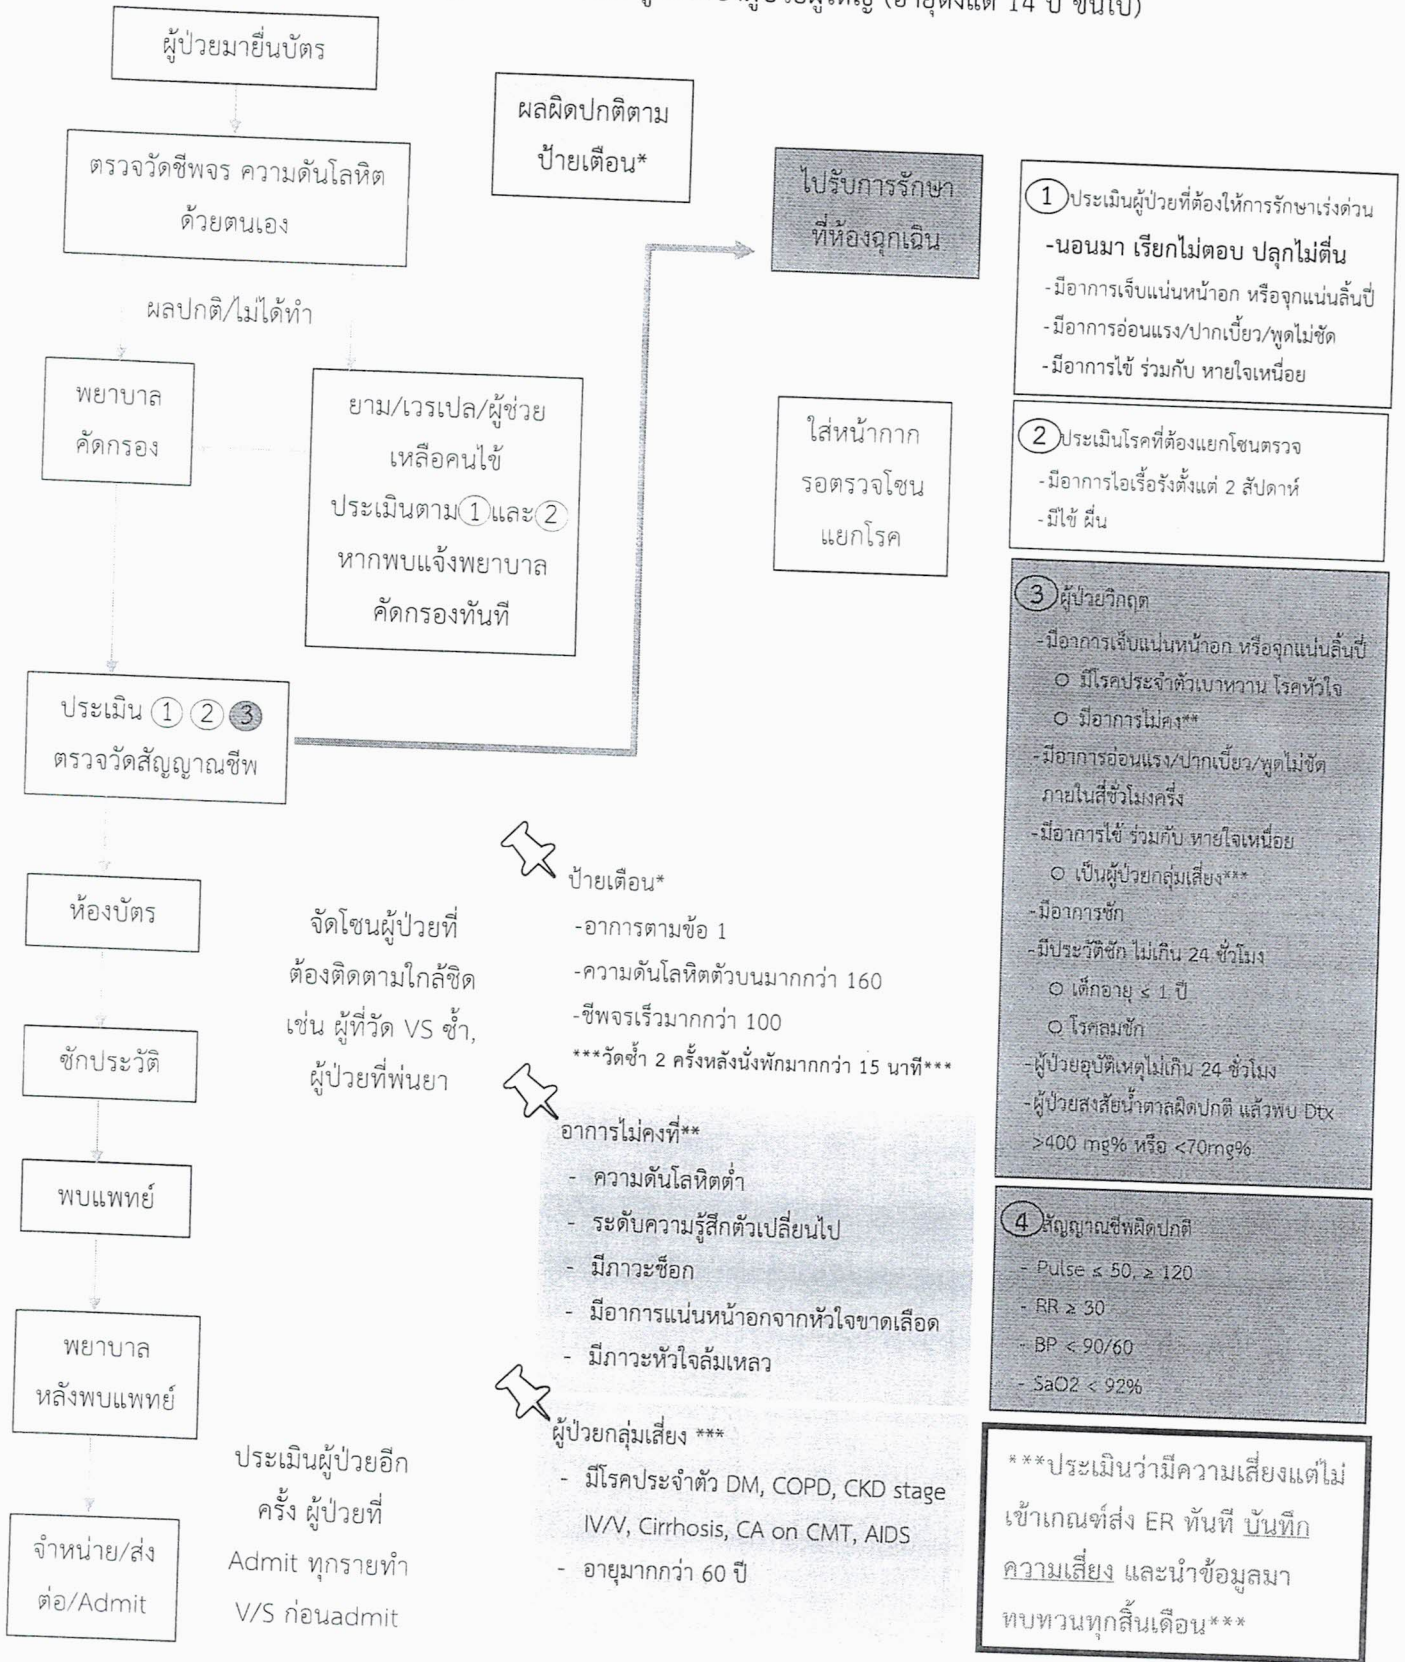 ผู้ป่วยผู้ใหญ่ (อายุตั้งแต่ 14 ปี ขึ้นไป)
ผู้ป่วยมายื่นบัตร
ตรวจวัดชีพจร ความดันโลหิต
ด้วยตนเอง
ผลปกติ/ไม่ได้ทำ
พยาบาล
คัดกรอง
ยาม/เวรเปล/ผู้ช่วย
เหลือคนไข้
ประเมินตาม①และ②
หากพบแจ้งพยาบาล
คัดกรองทันที
ประเมิน ① ② ③
ตรวจวัดสัญญาณชีพ
ห้องบัตร
ซักประวัติ
พบแพทย์
พยาบาล
หลังพบแพทย์
จำหน่าย/ส่ง
ต่อ/Admit
ผลผิดปกติตาม
ป้ายเตือน*
ไปรับการรักษา
ที่ห้องฉุกเฉิน
ใส่หน้ากาก
รอตรวจโซน
แยกโรค
จัดโซนผู้ป่วยที่
ต้องติดตามใกล้ชิด
เช่น ผู้ที่วัด VS ซ้ำ,
ผู้ป่วยที่พ่นยา
ประเมินผู้ป่วยอีก
ครั้ง ผู้ป่วยที่
Admit ทุกรายทำ
V/S ก่อนadmit
ป้ายเตือน*
-อาการตามข้อ 1
-ความดันโลหิตตัวบนมากกว่า 160
-ชีพจรเร็วมากกว่า 100
***วัดซ้ำ 2 ครั้งหลังนั่งพักมากกว่า 15 นาที***
อาการไม่คงที่**
- ความดันโลหิตต่ำ
- ระดับความรู้สึกตัวเปลี่ยนไป
- มีภาวะช็อก
- มีอาการแน่นหน้าอกจากหัวใจขาดเลือด
- มีภาวะหัวใจล้มเหลว
ผู้ป่วยกลุ่มเสี่ยง ***
- มีโรคประจำตัว DM, COPD, CKD stage
IV/V, Cirrhosis, CA on CMT, AIDS
- อายุมากกว่า 60 ปี
①ประเมินผู้ป่วยที่ต้องให้การรักษาเร่งด่วน
-นอนมา เรียกไม่ตอบ ปลุกไม่ตื่น
-มีอาการเจ็บแน่นหน้าอก หรือจุกแน่นลิ้นปี่
-มีอาการอ่อนแรง/ปากเบี้ยว/พูดไม่ชัด
-มีอาการไข้ ร่วมกับ หายใจเหนื่อย
②ประเมินโรคที่ต้องแยกโซนตรวจ
-มีอาการไอเรื้อรังตั้งแต่ 2 สัปดาห์
-มีไข้ ผื่น
③ผู้ป่วยวิกฤต
-มีอาการเจ็บแน่นหน้าอก หรือจุกแน่นลิ้นปี่
O มีโรคประจำตัวเบาหวาน โรคหัวใจ
O มีอาการไม่คง**
-มีอาการอ่อนแรง/ปากเบี้ยว/พูดไม่ชัด
ภายในสี่ชั่วโมงครึ่ง
-มีอาการไข้ ร่วมกับ หายใจเหนื่อย
O เป็นผู้ป่วยกลุ่มเสี่ยง***
-มีอาการชัก
-มีประวัติชัก ไม่เกิน 24 ชั่วโมง
O เด็กอายุ ≤ 1 ปี
O โรคลมชัก
-ผู้ป่วยอุบัติเหตุไม่เกิน 24 ชั่วโมง
-ผู้ป่วยสงสัยน้ำตาลผิดปกติ แล้วพบ Dtx
>400 mg% หรือ <70mg%
④สัญญาณชีพผิดปกติ
- Pulse ≤ 50, ≥ 120
- RR ≥ 30
- BP < 90/60
- SaO2 < 92%
***ประเมินว่ามีความเสี่ยงแต่ไม่
เข้าเกณฑ์ส่ง ER ทันที บันทึก
ความเสี่ยง และนำข้อมูลมา
ทบทวนทุกสิ้นเดือน***